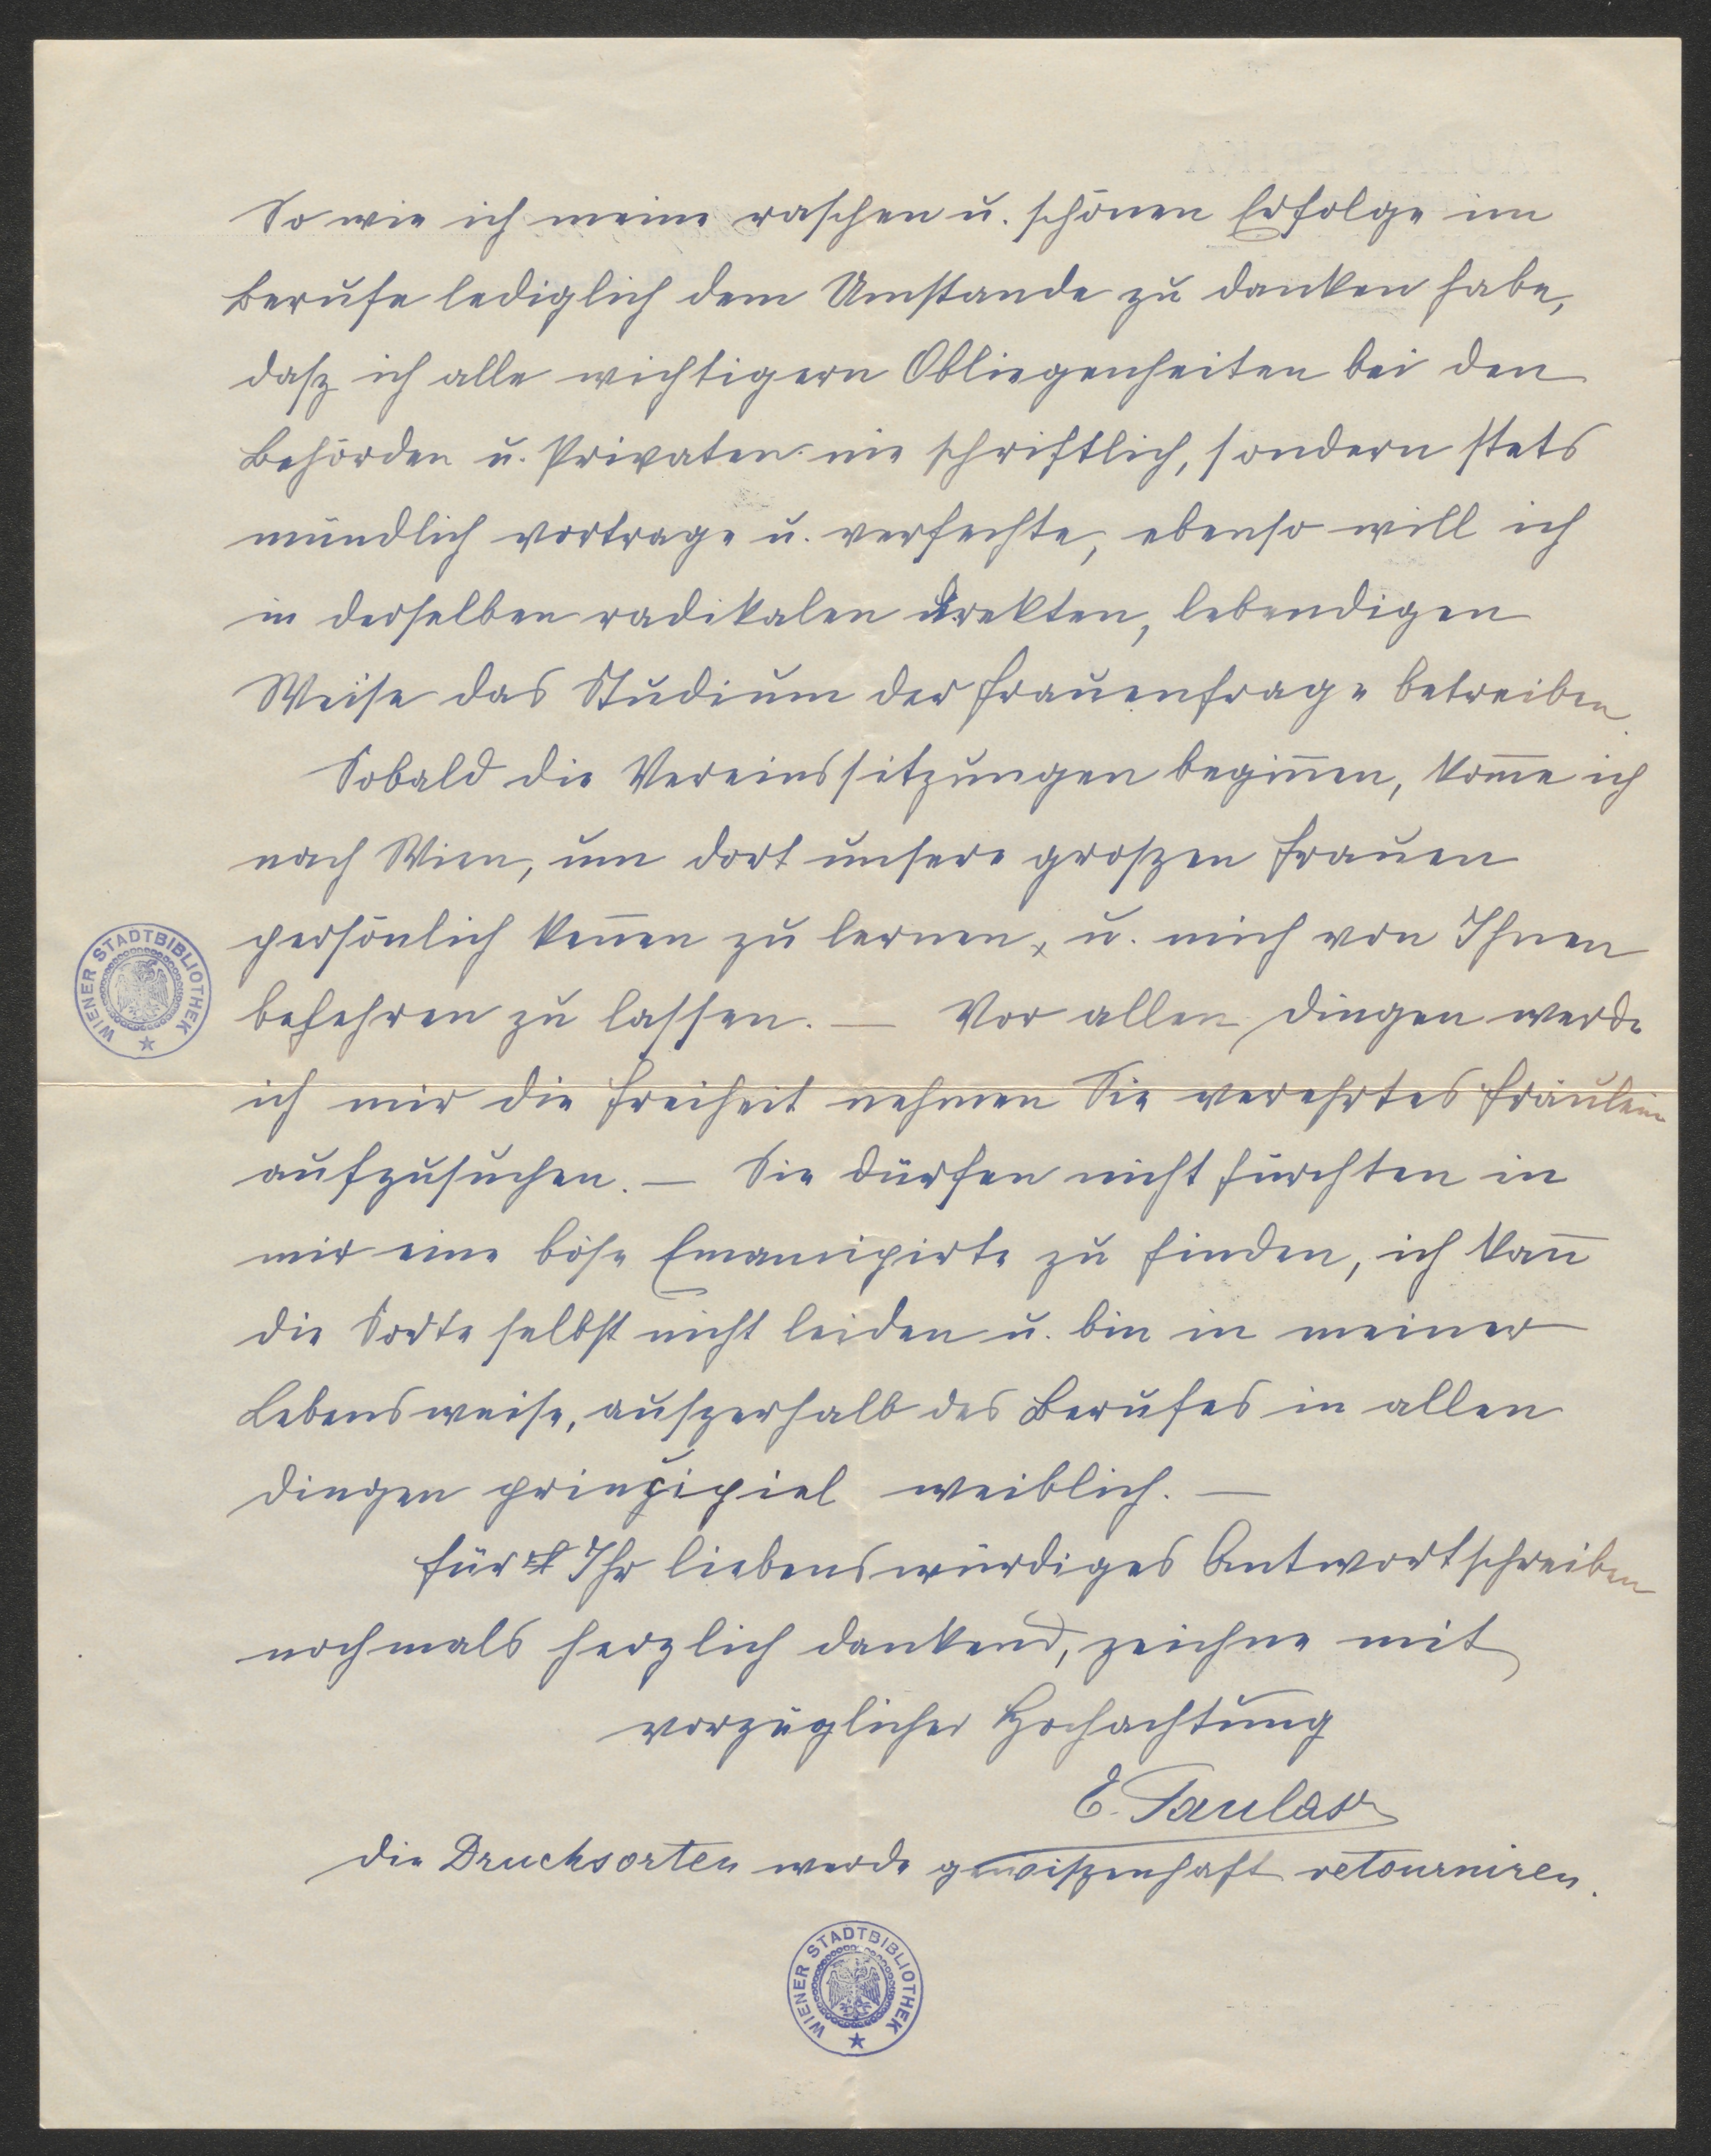 So wie ich meine raschen u. schönen Erfolge im
Berufe lediglich dem Umstande zu danken habe,
dasz ich alle wichtigern Obliegenheiten bei den
Behörden u. Privaten nie schriftlich, sondern stets
mündlich vortrage u. verfechte, ebenso will ich
in derselben radikalen direkten, lebendigen
Weise das Studium der Frauenfrage betreiben.
Sobald die Vereinssitzungen begin̅en, kom̅e ich
nach Wien, um dort unsere groszen Frauen
persönlich ken̅en zu lernen, u. mich von Ihnen
bekehren zu lassen. — Vor allen Dingen werde
ich mir die Freiheit nehmen Sie verehrtes Fräulein
aufzusuchen. — Sie dürfen nicht fürchten in
mir eine böse Emancipirte zu finden, ich kan̅
die Sorte selbst nicht leiden u. bin in meiner
Lebensweise, auszerhalb des Berufes in allen
Dingen prinzipiel weiblich. —
Für Ihr liebenswürdiges Antwortschreiben
nochmals herzlich dankend, zeichne mit
vorzüglicher Hochachtung
E. Paulas
Die Drucksorten werde gewiszenhaft retourniren.
WIENER STADTBIBLIOTHEK
WIENER STADTBIBLIOTHEK